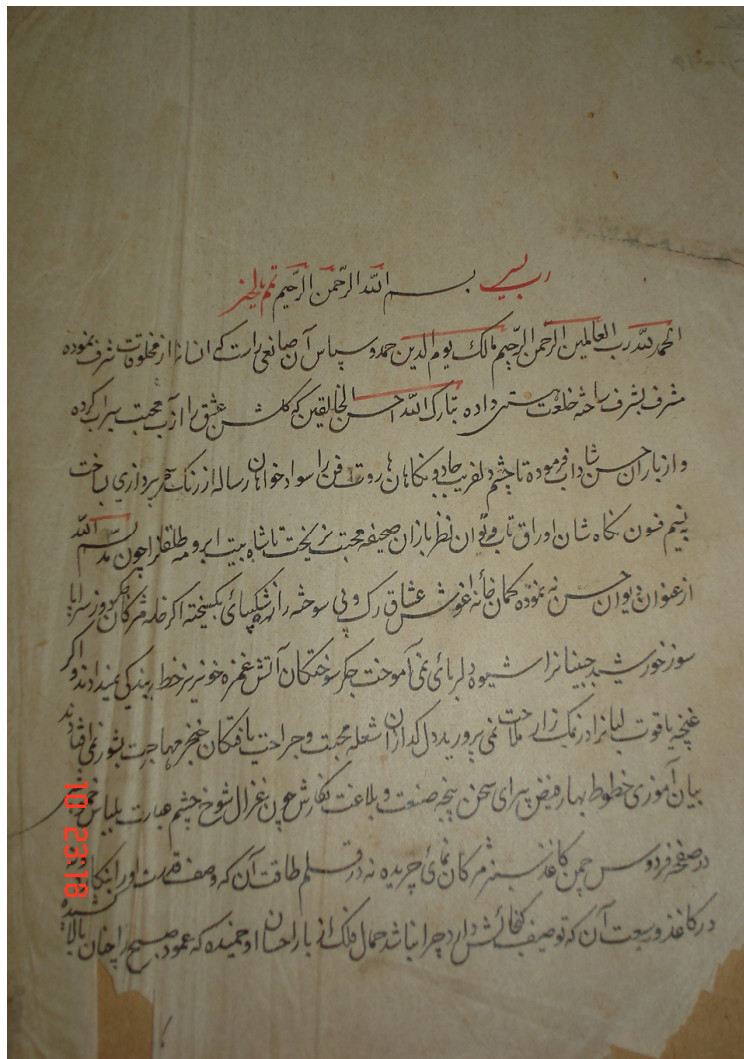 رب یسر بسم الله الرحمن الرحیم تمم بالخیر
الحمد لله رب العالمین الرحمن الرحیم مالک یوم الدین حمد و سپاس آن صانعی راست که انسان را از مخلوقات شرف نموده
مشرف بشرف خلعت هستی داده تبارک الله احسن الخالقین که گلشن عشق را از آب محبت سیراب کرده
و از باران حسن شاداب فرموده تا چشم دلفریب جادو نگاهان را سواد خوان رساله از رنگ سحر پردازی ساخت
به نیم فسون نگاه شان اوراق تاب و توان نظر بازان صحیفه محبت بریخت تا شاه بیت ابرو مه طلقان را چون مد بسم الله
از عنوان دیوان حسن نموده کمان خانه اغوش عشاق رگ و پی سوخته را از شکیبائی بگسیخته اگر
سوز خورشید جبینان را شیوه دلربای نمی آموخت جگر سوختگان آتش غمزه خونریز خط بندگی نمیدادند و اگر
غنچه یاقوت لبان را در نمک زار ملاحت نمی پرورید دل گدازان شعله محبت و جراحت یافتگان خنجر مهاجرت بشور نمی افتادند
بیان آموزی خطوط بهار فیض پیرای سخن پنجه صنعت و بلاغت نگارش چون غزال شوخ چشم عبارت بلباس
در صفحه فردوس چمن کاغذ سبزه مژگان نمای چریده نه در قلم طاقت آن که وصف قدرت او را نگارد نه
در کاغذ وسعت آن که توصیف دارد چرا نباشد حمال فلک از بار احسان او خمیده که عمود صبح را چنان بالا کشیده
10 23:18